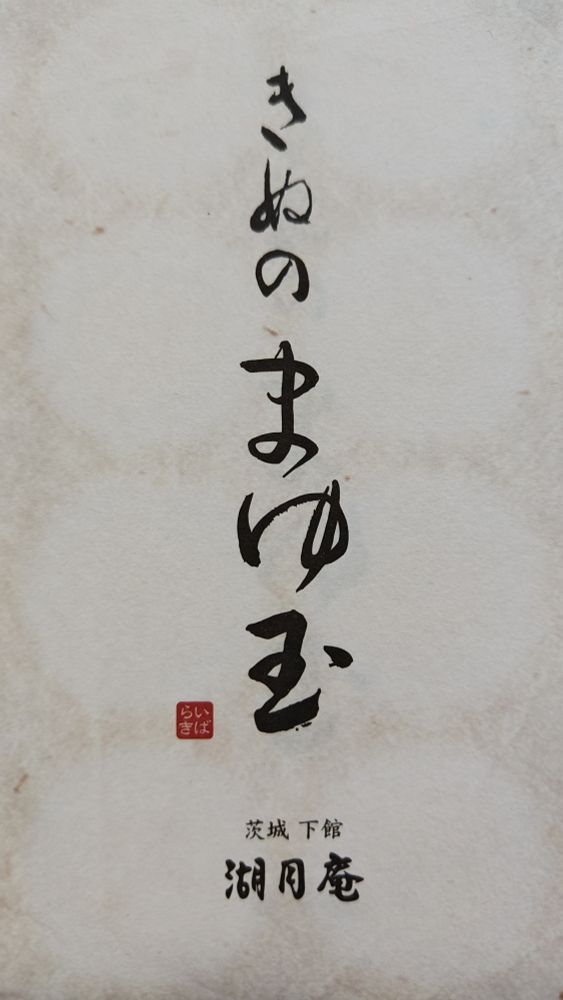 きぬの
まゆ玉
いばらき
茨城 下館
湖月庵